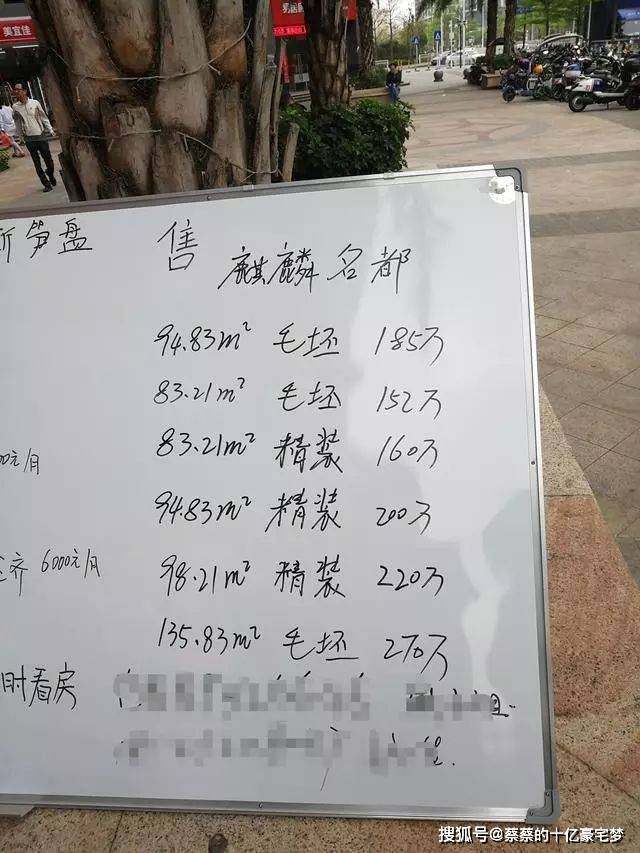 美宜佳
笋盘 售 麒麟名都
94.83m² 毛坯 185万
83.21m² 毛坯 152万
83.21m² 精装 160万
元/月
94.83m² 精装 200万
6000元/月 98.21m² 精装 220万
135.83m² 毛坯 270万
时看房
搜狐号@蔡蔡的十亿豪宅梦